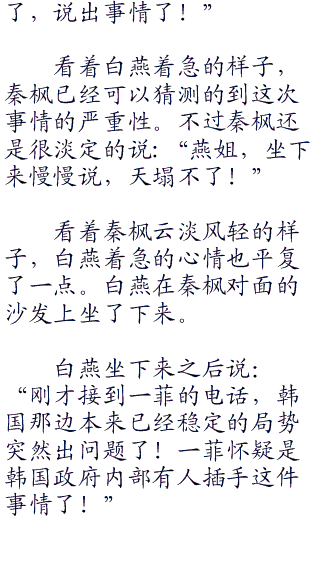 了，说出事情了！”
看着白燕着急的样子，
秦枫已经可以猜测的到这次
事情的严重性。不过秦枫还
是很淡定的说：“燕姐，坐下
来慢慢说，天塌不了！”
看着秦枫云淡风轻的样
子，白燕着急的心情也平复
了一点。白燕在秦枫对面的
沙发上坐了下来。
白燕坐下来之后说：
“刚才接到一菲的电话，韩
国那边本来已经稳定的局势
突然出问题了！一菲怀疑是
韩国政府内部有人插手这件
事情了！”